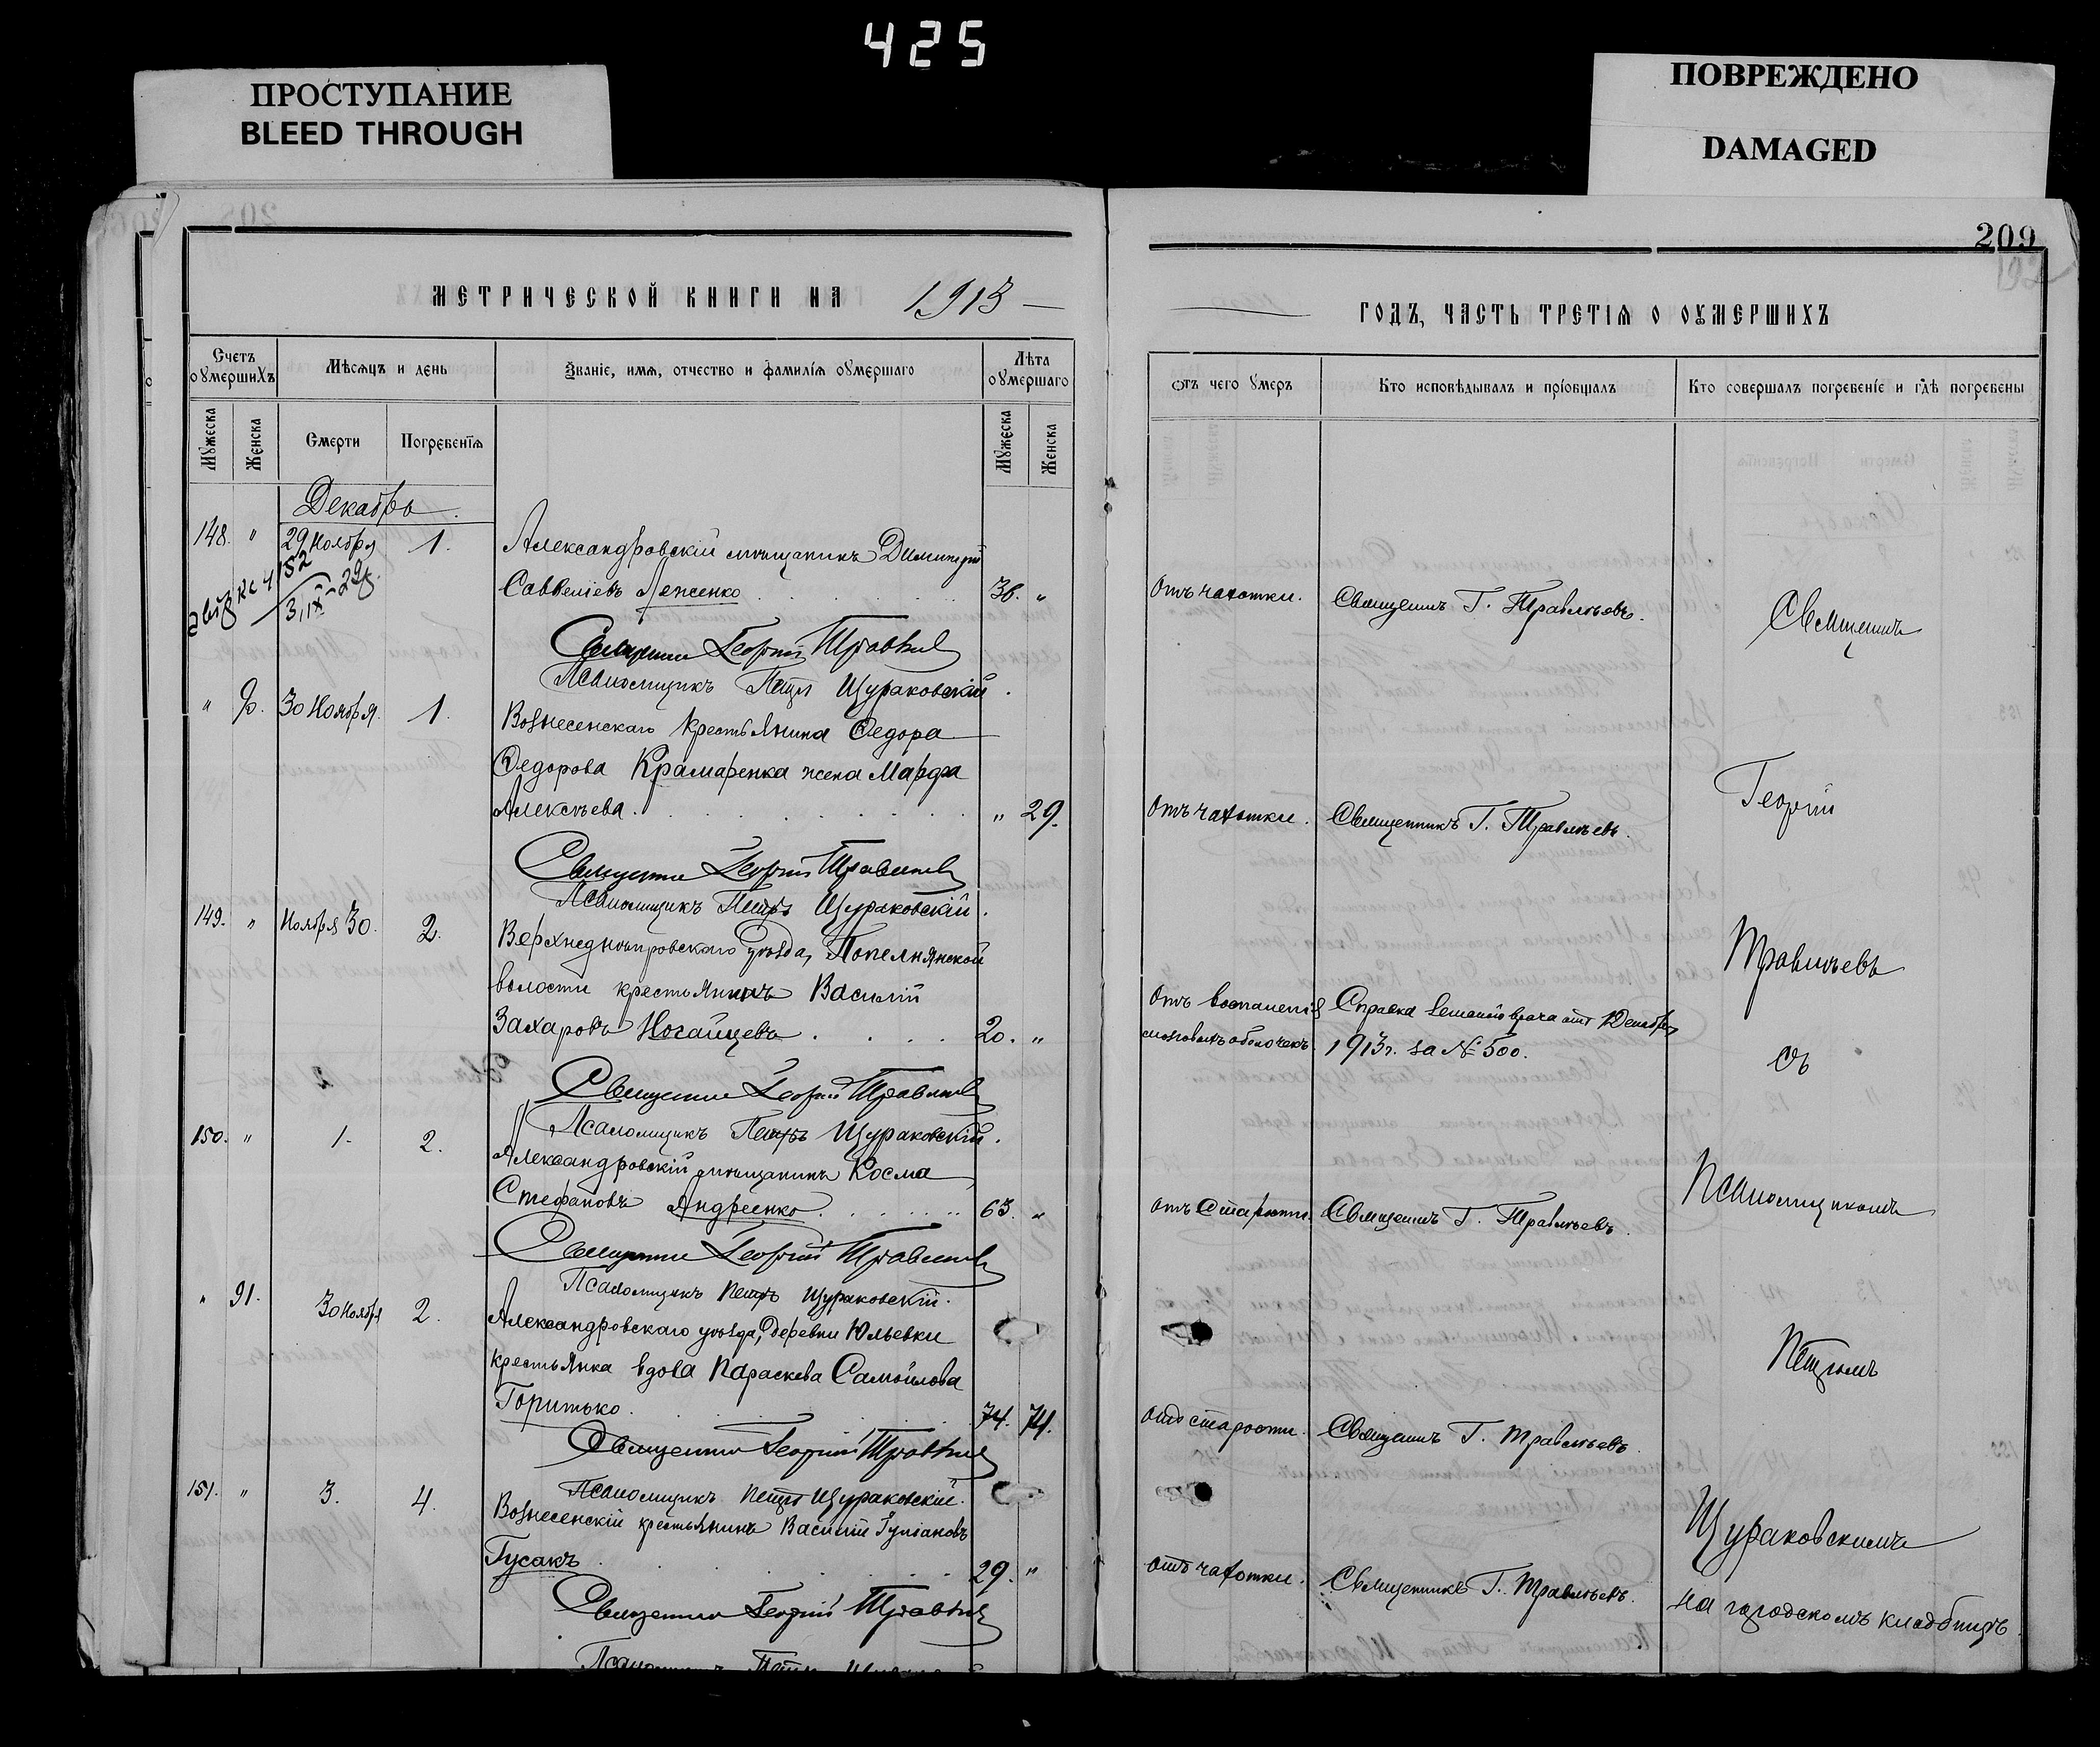 425
ПРОСТУПАНИЕ
BLEED THROUGH
ПОВРЕЖДЕНО
DAMAGED
209
192
МЕТРИЧЕСКОЙ КНИГИ НА 1913
ГОДЪ, ЧАСТЬ ТРЕТІЯ О ОУМЕРШИХЪ
Счетъ оумершихъ
Мѣсяцъ и день
Званіе, имя, отчество и фамилія оумершаго
Лѣта оумершаго
отъ чего умеръ
Кто исповѣдывалъ и пріобщалъ
Кто совершалъ погребеніе и гдѣ погребены
Мужеска
Женска
Смерти
Погребенія
Мужеска
Женска
Декабрь
148. " 29 Ноября 1. Александровскій мѣщанинъ Димитрій
Савведіевъ Леженко 36. " Отъ чахотки. Священникъ Г. Травлѣевъ.
4182
3, IX - 29
Священникъ Георгій
Псаломщикъ Петръ Щураковскій.
" 90. 30 Ноября. 1. Вознесенскаго крестьянина Ѳедора
Ѳедорова Крамаренка жена Марфа
Алексѣева. " 29. Отъ чахотки. Священникъ Г. Травлѣевъ.
Священникъ Георгій
Псаломщикъ Петръ Щураковскій.
149. " Ноября 30. 2. Верхнеднѣпровскаго уѣзда, Попелнянской
волости крестьянинъ Василій
Захаровъ Ногайцевъ 20. "
Отъ воспаленія
мозговыхъ оболочекъ.
Справка врача отъ 1 Декабря
1913 г. за № 500.
Священникъ Георгій
Псаломщикъ Петръ Щураковскій.
150. " 1. 2. Александровскій мѣщанинъ Косма
Стефановъ Андреенко 63. " Отъ старости. Священникъ Г. Травлѣевъ.
Священникъ Георгій
Псаломщикъ Петръ Щураковскій.
" 91. 30 Ноября 2. Александровскаго уѣзда, деревни Юльевки
крестьянка вдова Параскева Самойлова
Горитько. 74. 74. Отъ старости. Священникъ Г. Травлѣевъ.
Священникъ Георгій
Псаломщикъ Петръ Щураковскій.
151. " 3. 4. Вознесенскій крестьянинъ Василій Гуліановъ
Гусакъ 29. " Отъ чахотки. Священникъ Г. Травлѣевъ.
Священникъ Георгій
Псаломщикъ Петръ
Священникъ
Георгій
Травлѣевъ
съ
Псаломщикомъ
Петромъ
Щураковскимъ
на городскомъ кладбищѣ.